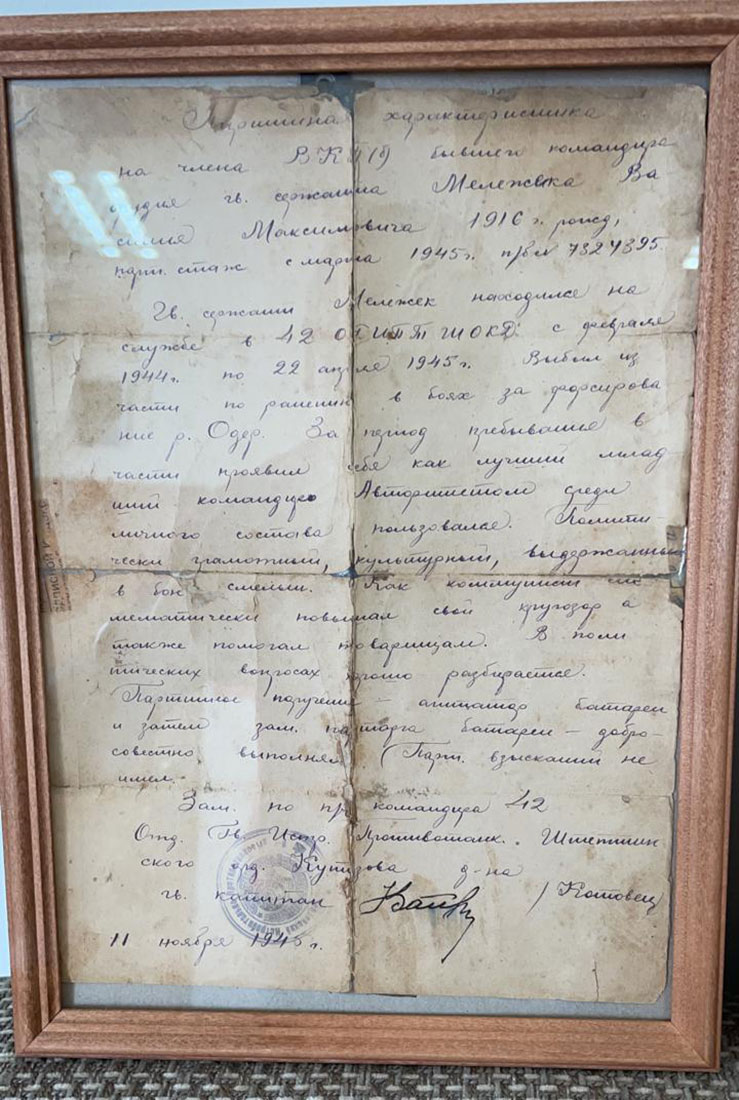 Партийна характеристика
на члена ВКП(б) бывшего командира
орудия гв. сержанта Мележека Ва
силия Максимовича 1916 г. рожд,
парт. стаж с марта 1945 г. п/б № 7324395
Гв. сержант Мележек находился на
службе в 42 ОГИПТШОКД с февраля
1944 г. по 22 апреля 1945 г. Выбыл из
части по ранению в боях за форсирова
ние р. Одер. За период пребывания в
части проявил себя как лучший млад
ший командир Авторитетом среди
личного состава пользовался. Полити-
чески грамотный, культурный, выдержанный
в бою смелый. Как коммунист сис
тематически повышал свой кругозор а
также помогал товарищам. В поли
тических вопросах разбирается.
Партийное поручение - агитатор батареи
и затем зам. парторга батареи - добро-
совестно выполнял Парт. взысканий не
имел.
Зам. по командира 42
Отд. Гв. Истр. Противотанк. Штеттин
ского орд. Кутузова д-на
гв. капитан /Котовец/
11 ноября 1945 г.